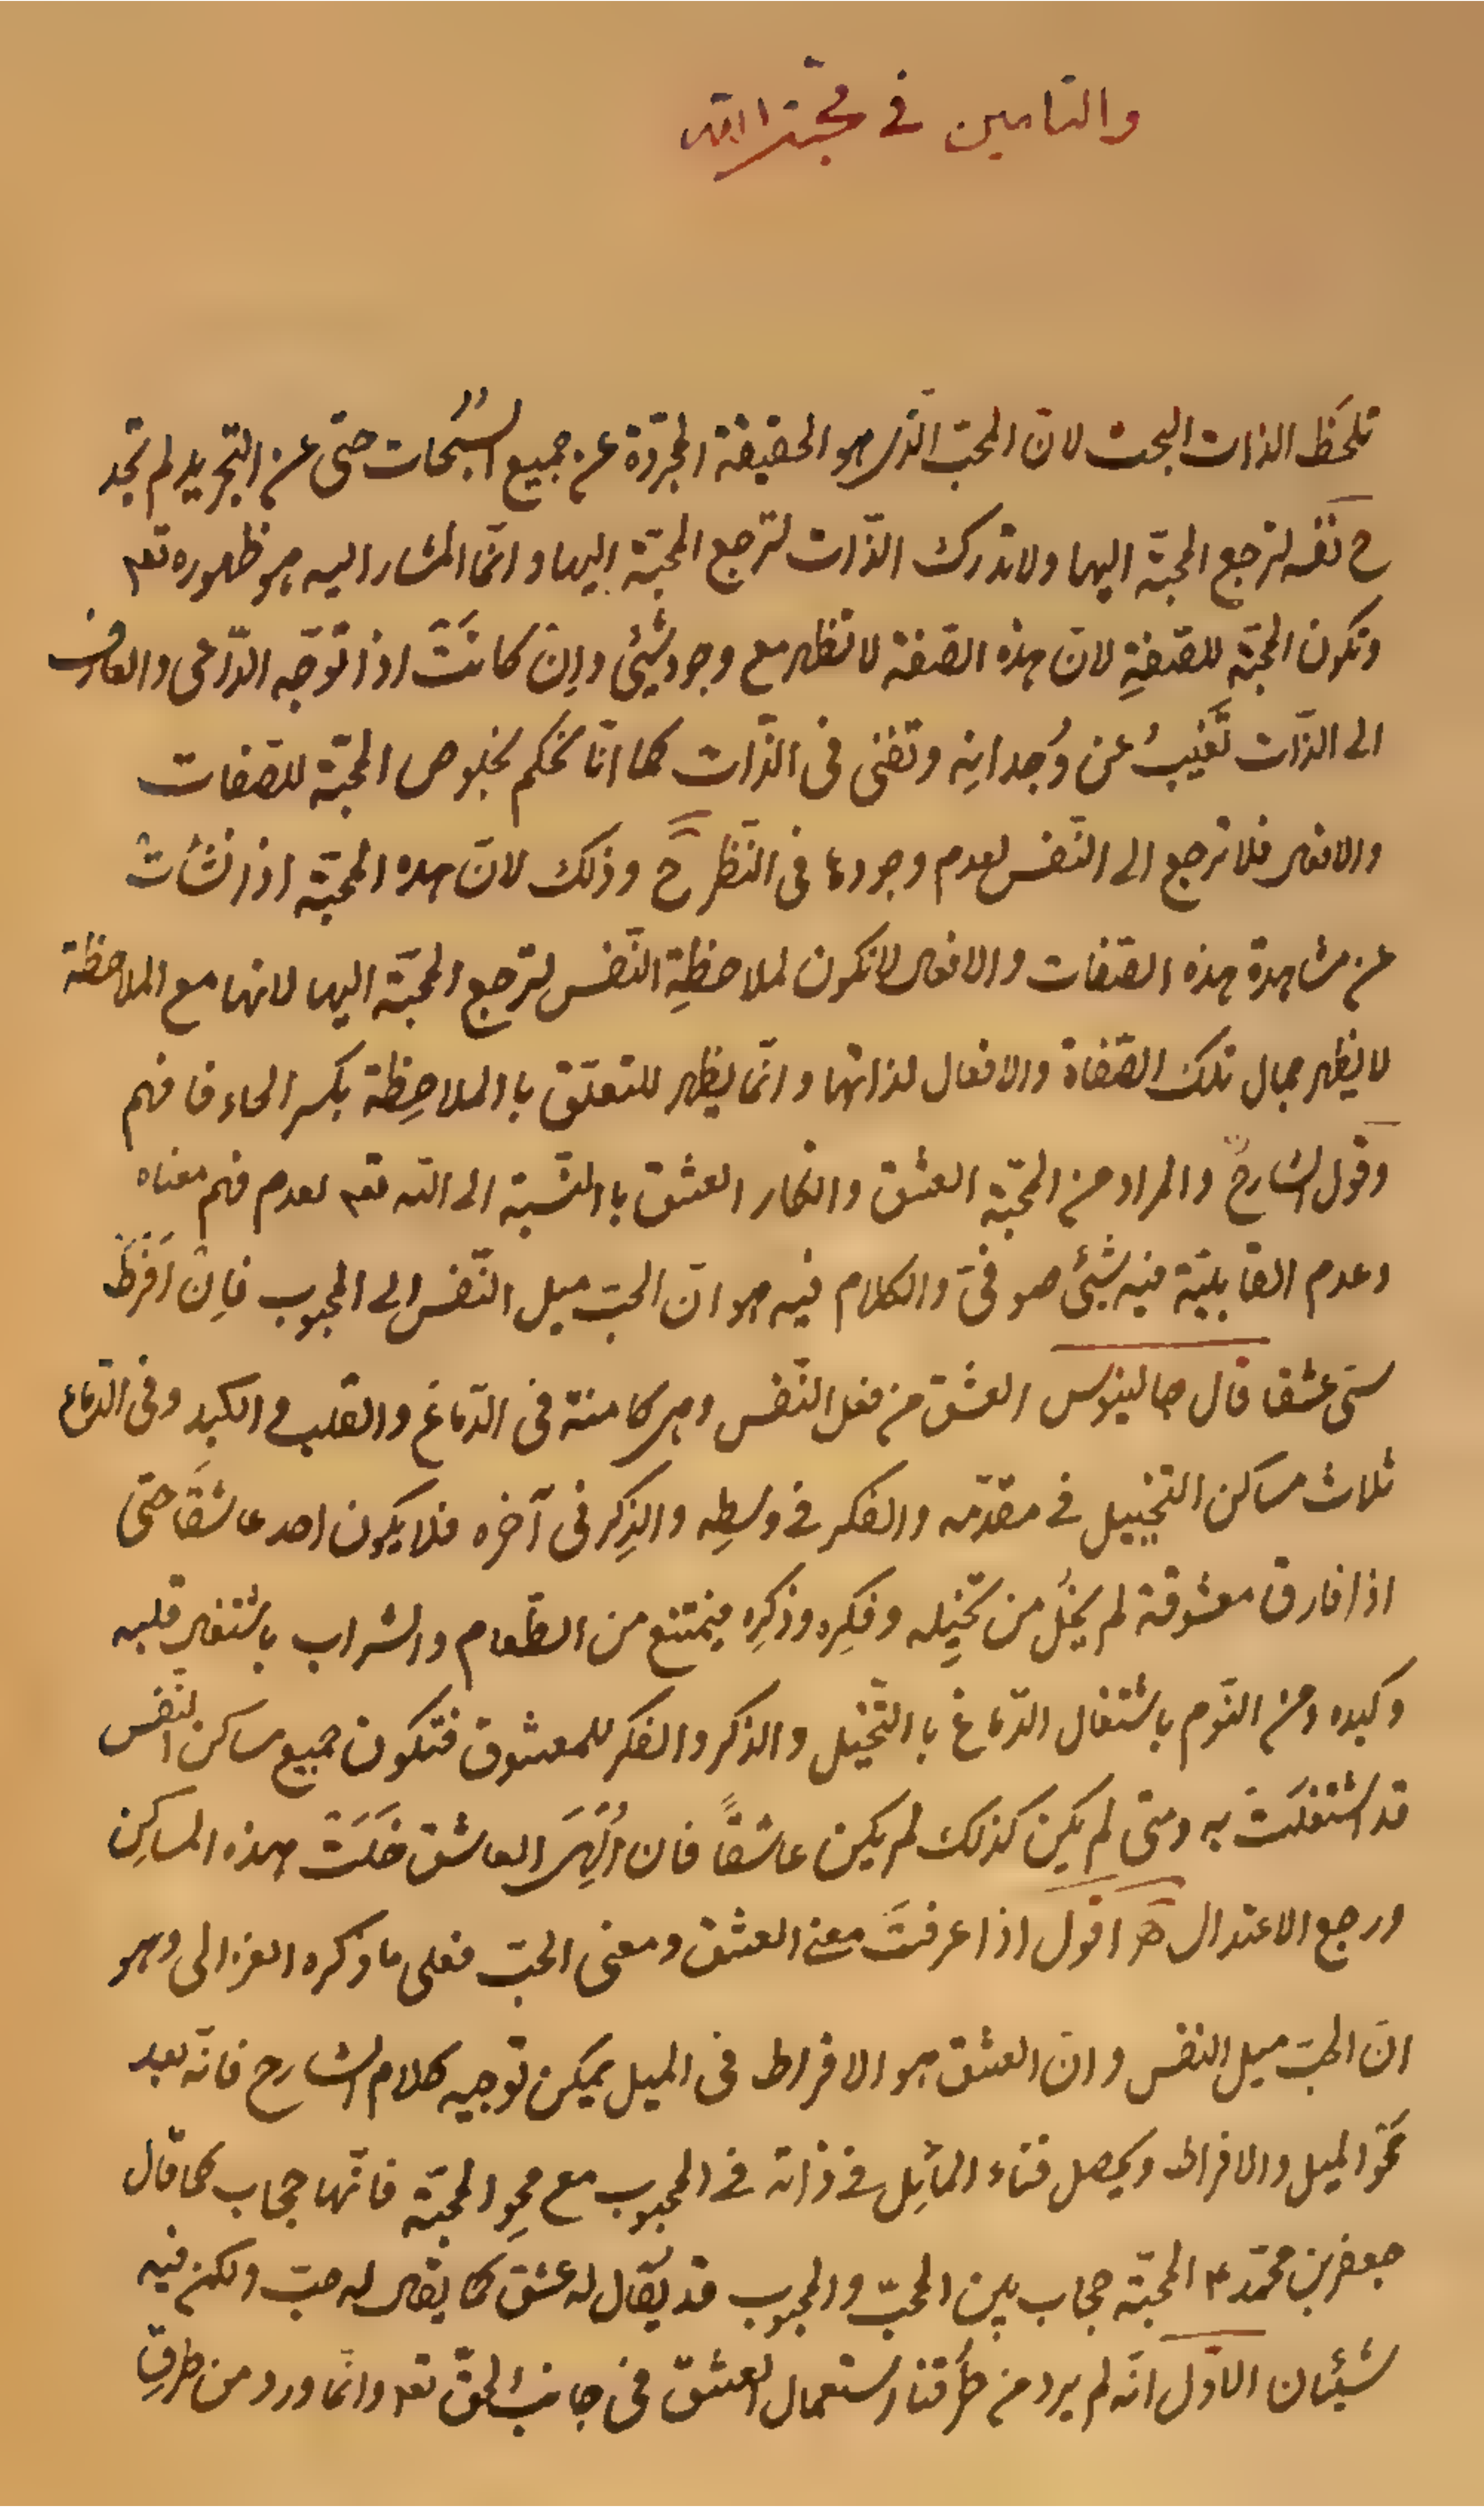 والتامين في محبّة الله
تلحظ الذات البحت لانّ المحبّ الّذي هو الحقيقة المجرّدة عن جميع السّبحات حتى عن التجريد لم تجد
ح نفسه لترجع المحبّة اليها ولا تدرك الذّات لترجع المحبّة اليها وانّما المشار اليه هو ظهوره تعم
وتكون المحبّة للصّفةِ لانّ هذه الصّفة لا تظهر مع وجود شيئ واِن كانَتْ اذا توجّه الدّاعى والعارف
الى الذّات تَغيبُ عن وُجدانِه وتفنى فى الذّات كما انّا نحكم بخلوص المحبّة للصّفات
والافعال فلا ترجع الى النّفس لعدم وجودها فى النّظر ح وذلك لانّ هذه المحبّة اذا نشأت
عن مشاهدة هذه الصّفات والافعال لا تكون لملاحظةِ النّفس لترجع المحبّة اليها لانها مع الملاحظة
لا يظهر جمال تلك الصّفاة والافعال لذاتها وانّما يظهر للتعلّق باالملاحِظة بكسر الحاء فافهم
وقول الشارح والمراد من المحبّة العشق وانكار العشق باالنّسبة الى الله تعم لعدم فهم معناه
وعدم القابليّة فيه شيئ صوفىّ والكلام فيه هو انّ الحبّ ميل النّفس الى المحبوب فاِنْ اَفرطَ
سمّى عشقا قال جالينوس العشق من فعل النّفس وهى كامنة فى الدّماغ والقلب والكبد وفى الدّماغ
ثلاث مساكن التخييل في مقدّمه والفكر في وسطِه والذِكر فى آخره فلا يكون احد عاشقًا حتّى
اذا فارق معشوقة لم يخلُ من تخيّله وفكِره وذكِره فيمتنع من الطّعام والشراب باشتغال قلبه
وكبده ومن النّوم باشتغال الدّماغ باالتّخيّل والذكر والفكر للمعشوق فتكون جميع مساكن النّفس
قد اشتغلَتْ به ومتى لم يكن كذلك لم يكن عاشقًا فان اُلهِىَ العاشق خَلَتْ هذه المساكِن
ورجع الاعتدال اقول اذا عرفتَ معنى العشق ومعنى الحبّ فعلى ما ذكره الغزالى وهو
انّ الحبّ ميل النفس وانّ العشق هو الافراط فى الميل يمكن توجيه كلام الشارح فانّه بعد
محو الميل والافراط ويحصل فناء المائِل في ذاته في المحبوب مع محوِ المحبّة فانّها حجاب كما قال
جعفر بن محمّد ع المحبّة حجاب بين المحبّ والمحبوب قد يُقال له عشق كما يقال له حبّ ولكن فيه
شيئان الاوّل انّه لم يرد من طُرقنا استعمال العشق فى جانب الحقّ تعم وانّما ورد من طرقِ